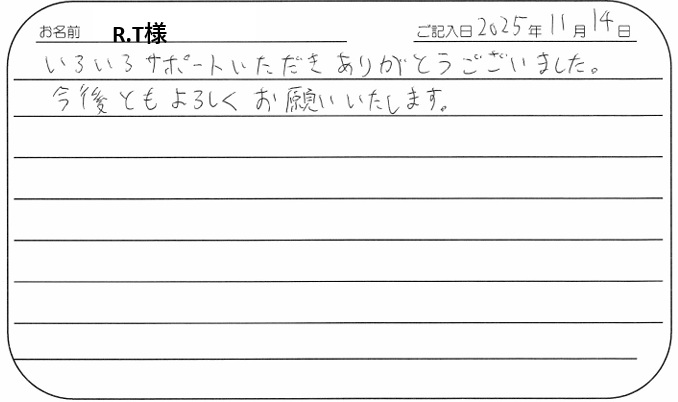 お名前 R.T様 ご記入日 2025年 11月 14日
いろいろサポートいただきありがとうございました。
今後ともよろしくお願いいたします。